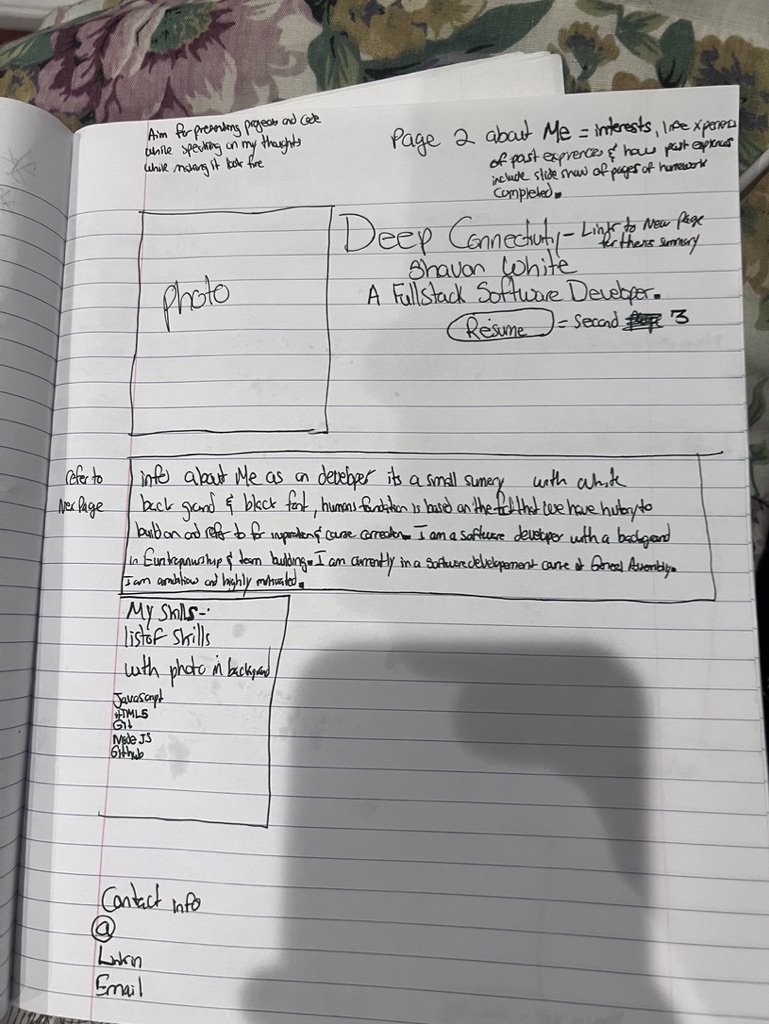 Aim for presenting projects and Code
while speaking on my thoughts
while making it look fire
Page 2 about Me = interests, life xperiences
of past exprences & how past
include slide show of pages of homework
Completed.
Deep Connectivity - Link to New Page
for theris summary
photo
Shavon White
A Fullstack Software Developer.
Résume = second 3
refer to
Nex Page
info about Me as an developer its a small sumery with white
back grand & black font, humans fondation is based on the fact that we have history to
build on and refer to for & course correction. I am a software developer with a background
in & team building. I am currently in a software developement course at General Assembly.
I am ambitious and highly motivated.
My Skills -
list of Skills
with photo in background
Javascript
HTML5
Git
Node JS
Github
Contact info
@
Email